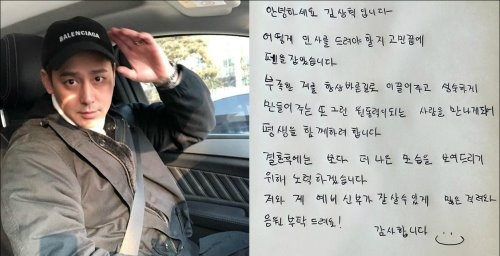 BALENCIAGA
안녕하세요 김상혁입니다
어떻게 인사를 드려야 할지 고민끝에
펜을 잡았습니다.
부족한 저를 항상 바른길로 이끌어주고 성숙하게
만들어 주는 또 그런 원동력이되는 사람을 만나게되어
평생을 함께하려 합니다.
결혼후에는 보다 더 나은 모습을 보여드리기
위해 노력 하겠습니다.
저와 제 예비 신부가 잘 살수있게 많은 격려와
응원 부탁 드려요!
감사합니다